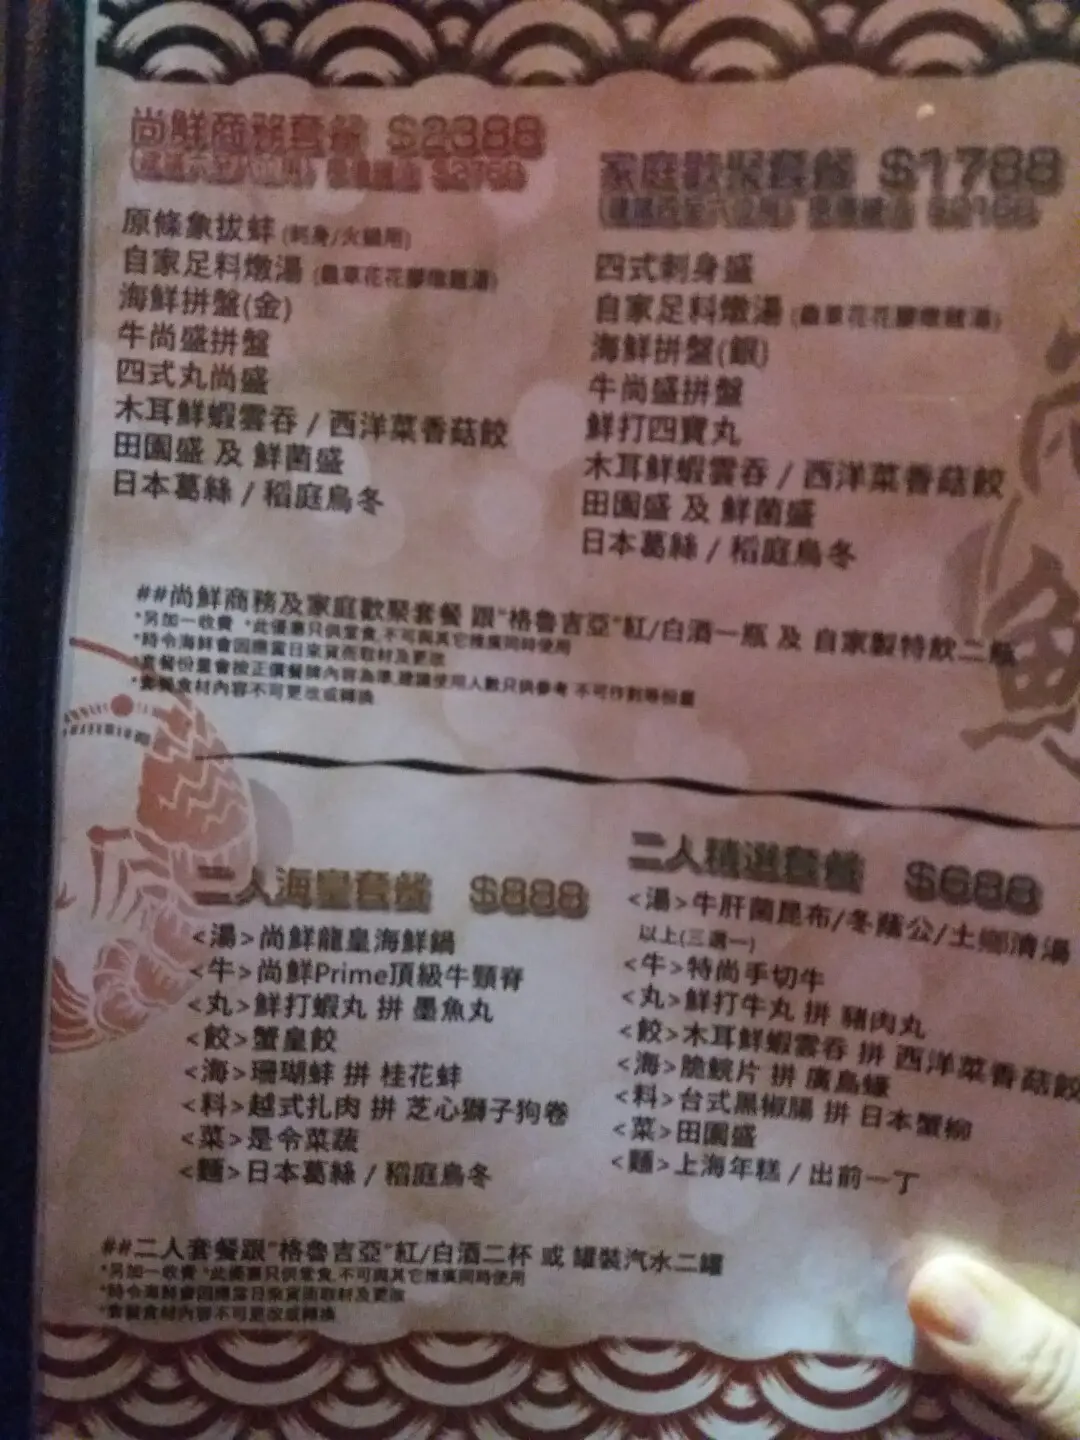 尚鮮商務套餐 $2388
原條象拔蚌 (刺身/火鍋用)
自家足料燉湯 (蟲草花花膠燉雞湯)
海鮮拼盤(金)
牛尚盛拼盤
四式丸尚盛
木耳鮮蝦雲吞 / 西洋菜香菇餃
田園盛 及 鮮菌盛
日本葛絲 / 稻庭烏冬
家庭歡聚套餐 $1788
四式刺身盛
自家足料燉湯 (蟲草花花膠燉雞湯)
海鮮拼盤(銀)
牛尚盛拼盤
鮮打四寶丸
木耳鮮蝦雲吞 / 西洋菜香菇餃
田園盛 及 鮮菌盛
日本葛絲 / 稻庭烏冬
##尚鮮商務及家庭歡聚套餐 跟"格魯吉亞"紅/白酒一瓶 及 自家製特飲二瓶
*另加一收費 *此優惠只供堂食,不可與其它推廣同時使用
*時令海鮮會因應當日來貨而取材及更改
*套餐份量會按正價餐牌內容為準,建議使用人數只供參考 不可作對等份量
*套餐食材內容不可更改或轉換
二人海皇套餐 $888
<湯>尚鮮龍皇海鮮鍋
<牛>尚鮮Prime頂級牛頸脊
<丸>鮮打蝦丸 拼 墨魚丸
<餃>蟹皇餃
<海>珊瑚蚌 拼 桂花蚌
<料>越式扎肉 拼 芝心獅子狗卷
<菜>是令菜蔬
<麵>日本葛絲 / 稻庭烏冬
二人精選套餐 $688
<湯>牛肝菌昆布/冬蔭公/土鄉清湯
以上(三選一)
<牛>特尚手切牛
<丸>鮮打牛丸 拼 豬肉丸
<餃>木耳鮮蝦雲吞 拼 西洋菜香菇餃
<海>脆鯇片 拼 廣島蠔
<料>台式黑椒腸 拼 日本蟹柳
<菜>田園盛
<麵>上海年糕 / 出前一丁
##二人套餐跟"格魯吉亞"紅/白酒二杯 或 罐裝汽水二罐
*另加一收費 *此優惠只供堂食,不可與其它推廣同時使用
*時令海鮮會因應當日來貨而取材及更改
*套餐食材內容不可更改或轉換